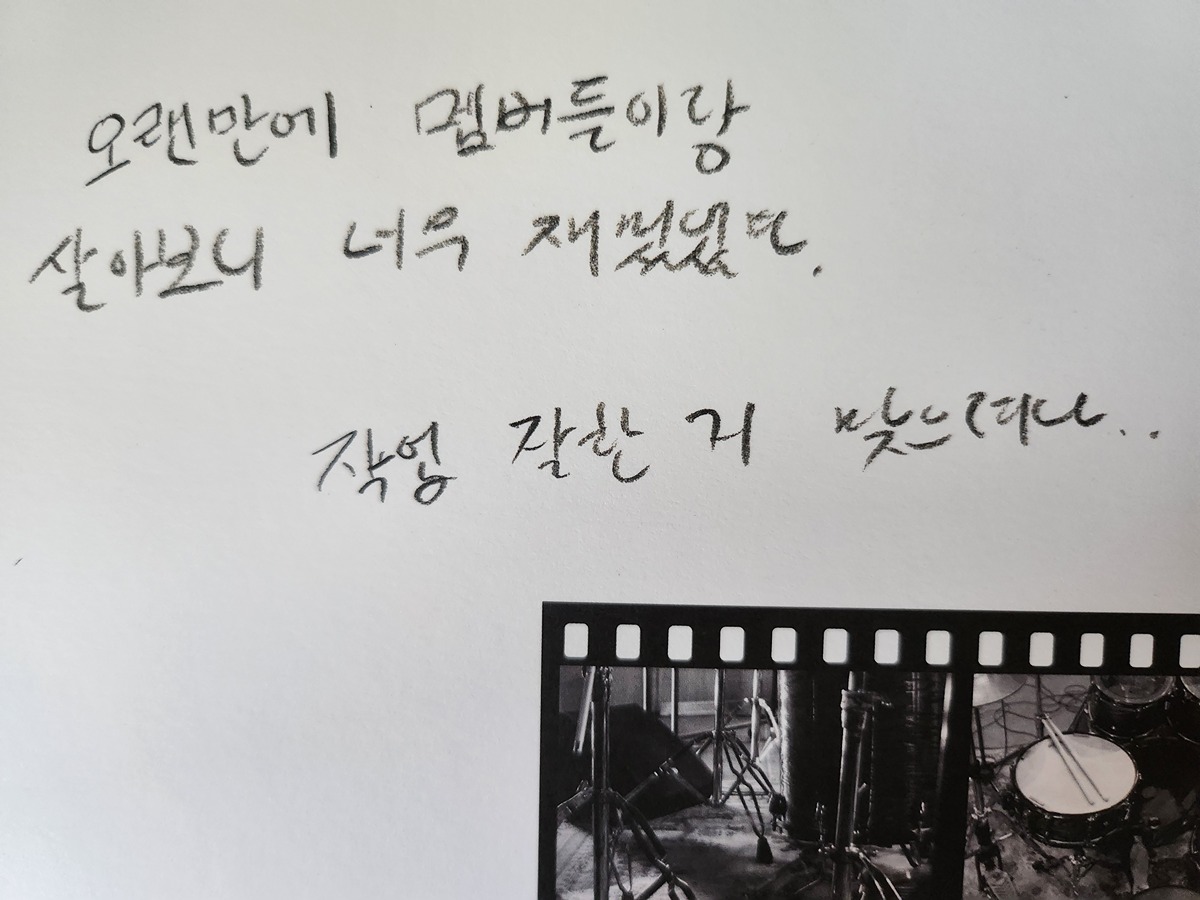 오랜만에 멤버들이랑
살아보니 너무 재밌었다.
작업 잘한 거 맞으려나..